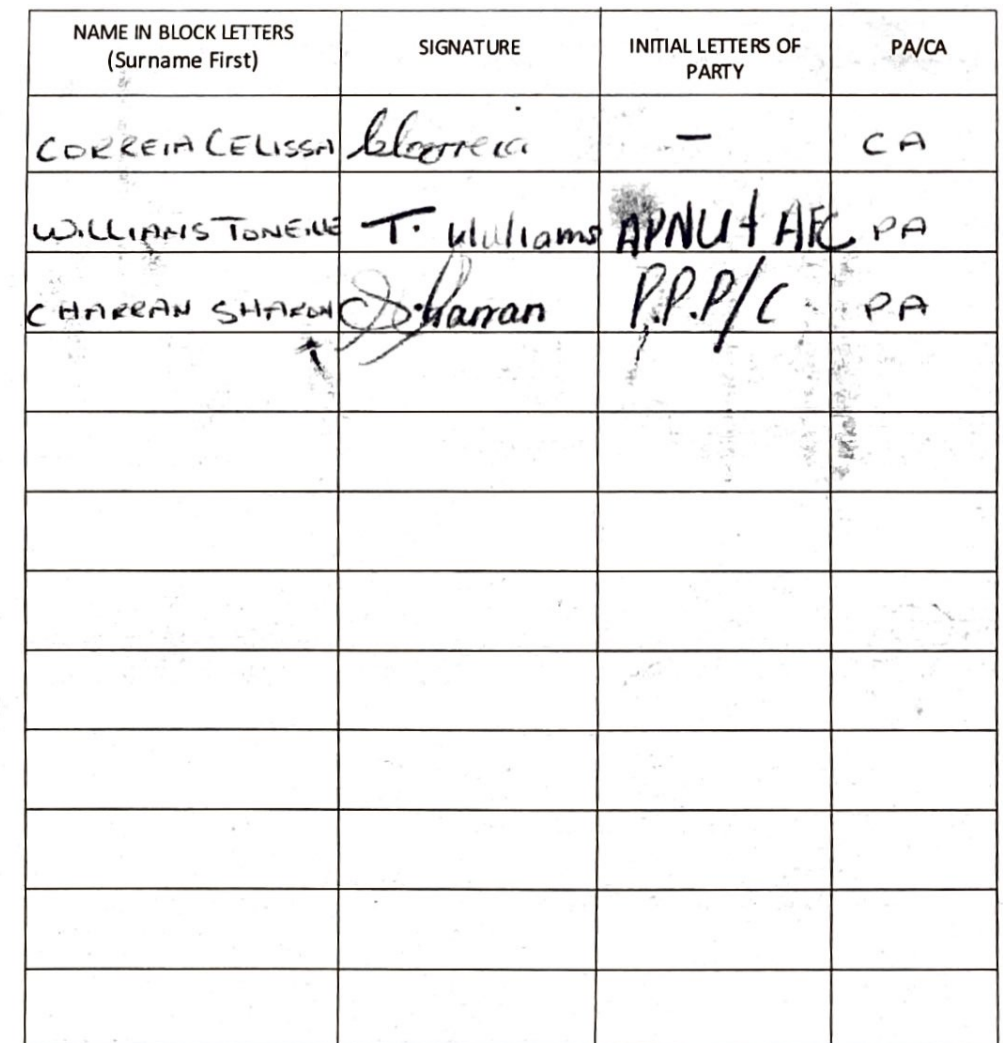 NAME IN BLOCK LETTERS (Surname First) SIGNATURE INITIAL LETTERS OF PARTY PA/CA
CORREIA CELISSA CCorreia — CA
WILLIAMS TONEILLE T. Williams APNU + AFC PA
CHARRAN SHARON S. Charran P.P.P/C PA